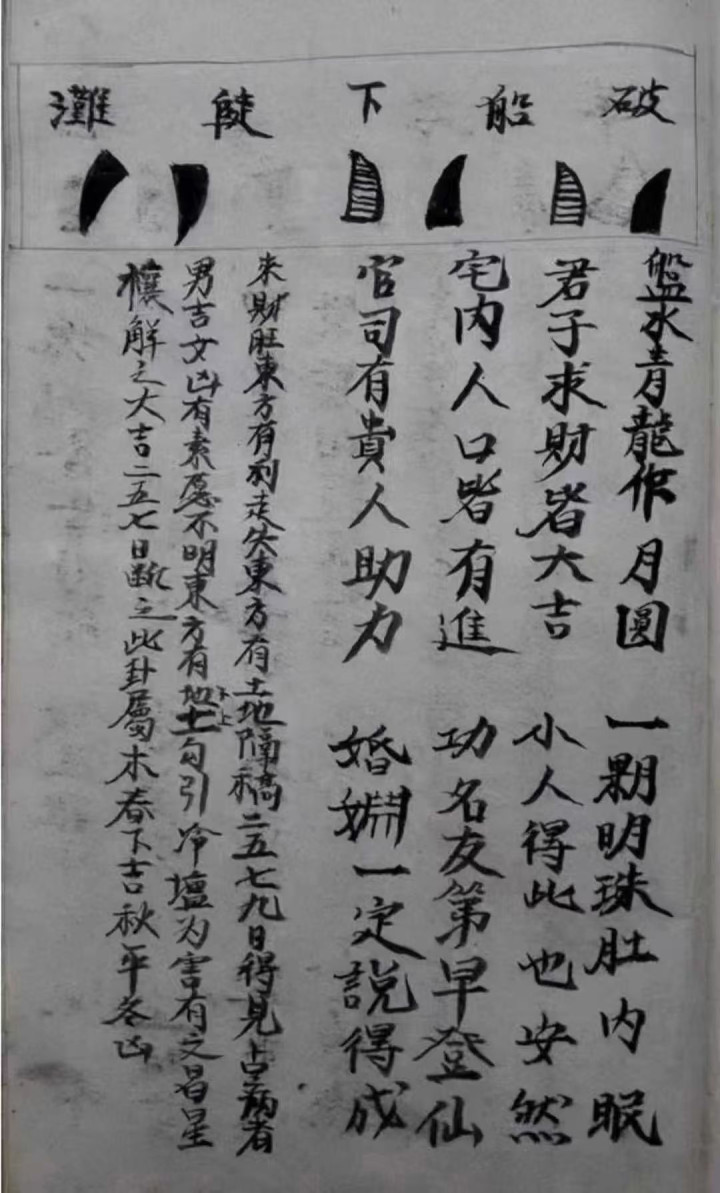 破船下陡灘
盤水青龍作月圓 一顆明珠肚内眠
君子求財皆大吉 小人得此也安然
宅内人口皆有進 功名友第早登仙
官司有貴人助力 婚姻一定説得成
来財旺東方有利走失東方有土地隔稿二五七九日得見占病者
男吉女凶有素愿不明東方有地土勾引冷壇为害有文昌星
樉解之大吉二五七日断之此卦屬木春下吉秋平冬凶